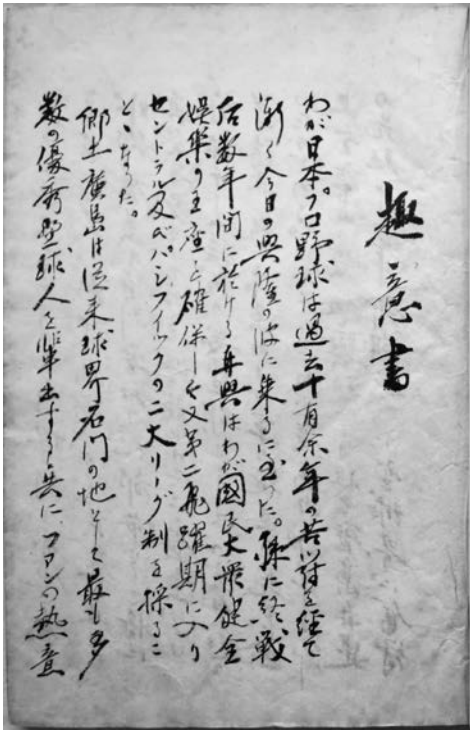 趣意書
わが日本プロ野球は過去十有余年の苦難を経て
漸く今日の興隆の波に乗るに至った。殊に終戦
后数年間に於ける再興はわが國民大衆健全
娯楽の王座を確保し今又第二飛躍期に入り
セントラル及びパシフイックの二大リーグ制を採るこ
とゝなった。
郷土廣島は従来球界名門の地として最も多
数の優秀野球人を輩出すると共に、ファンの熱意